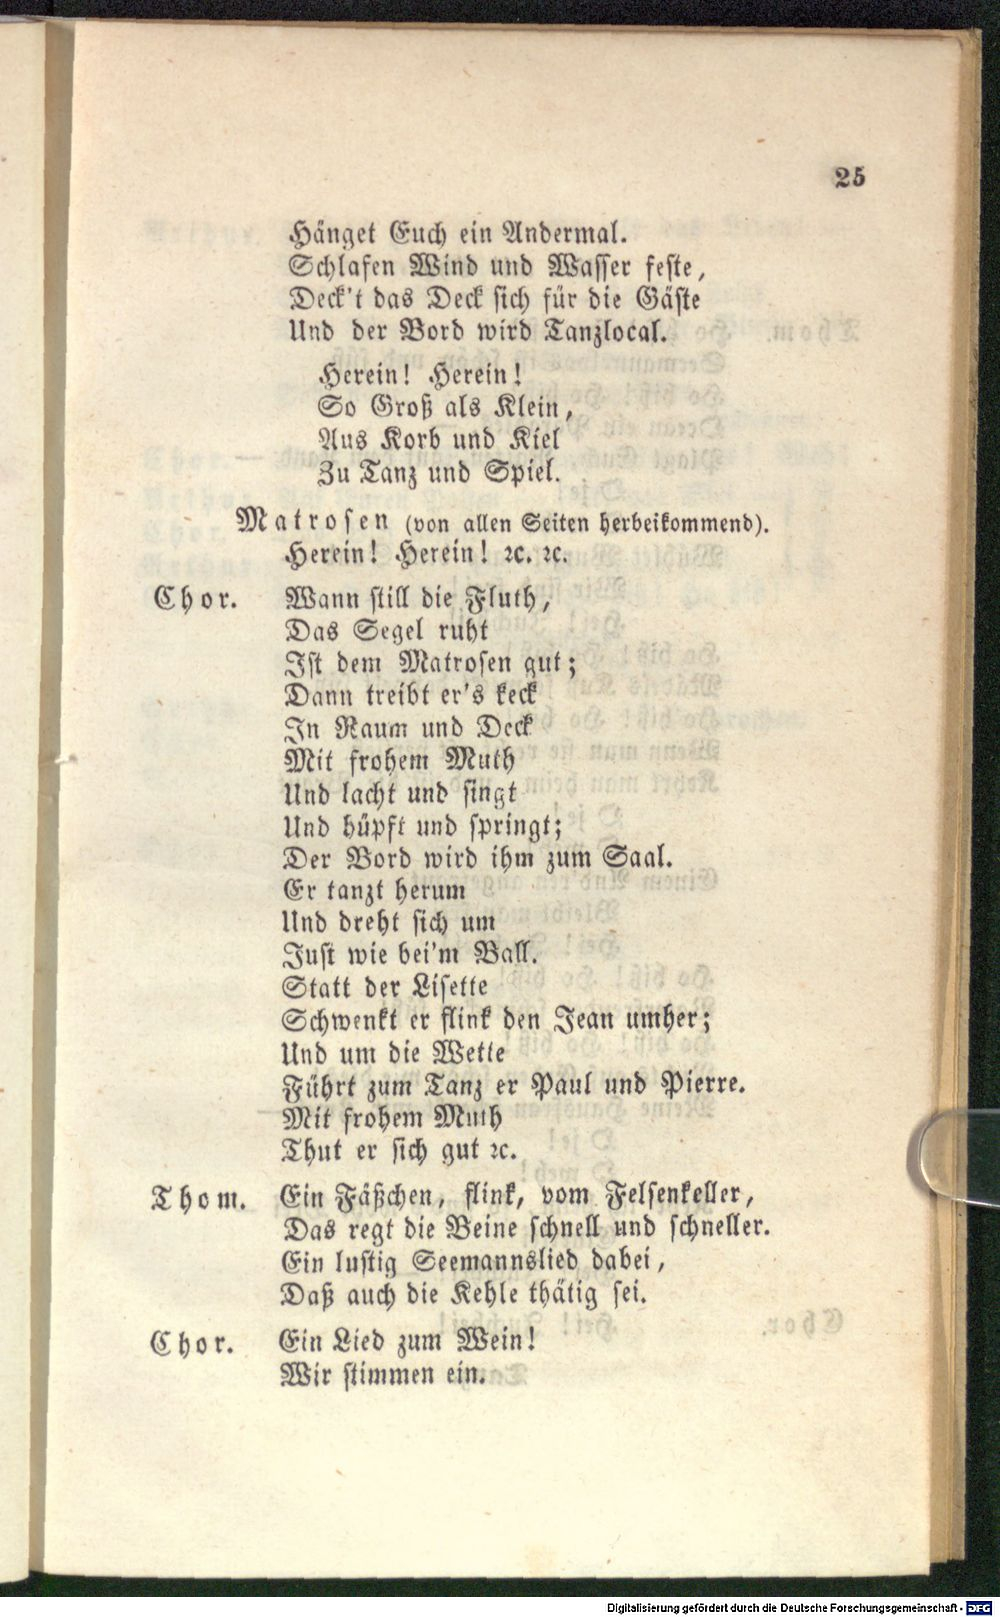 25
Hänget Euch ein Andermal.
Schlafen Wind und Wasser feste,
Deck't das Deck sich für die Gäste
Und der Bord wird Tanzlocal.
Herein! Herein!
So Groß als Klein,
Aus Korb und Kiel
Zu Tanz und Spiel.
Matrosen (von allen Seiten herbeikommend).
Herein! Herein! ꝛc. ꝛc.
Chor. Wann still die Fluth,
Das Segel ruht
Ist dem Matrosen gut;
Dann treibt er's keck
In Raum und Deck
Mit frohem Muth
Und lacht und singt
Und hüpft und springt;
Der Bord wird ihm zum Saal.
Er tanzt herum
Und dreht sich um
Just wie bei'm Ball.
Statt der Lisette
Schwenkt er flink den Jean umher;
Und um die Wette
Führt zum Tanz er Paul und Pierre.
Mit frohem Muth
Thut er sich gut ꝛc.
Thom. Ein Fäßchen, flink, vom Felsenkeller,
Das regt die Beine schnell und schneller.
Ein lustig Seemannslied dabei,
Daß auch die Kehle thätig sei.
Chor. Ein Lied zum Wein!
Wir stimmen ein.
Digitalisierung gefördert durch die Deutsche Forschungsgemeinschaft - DFG